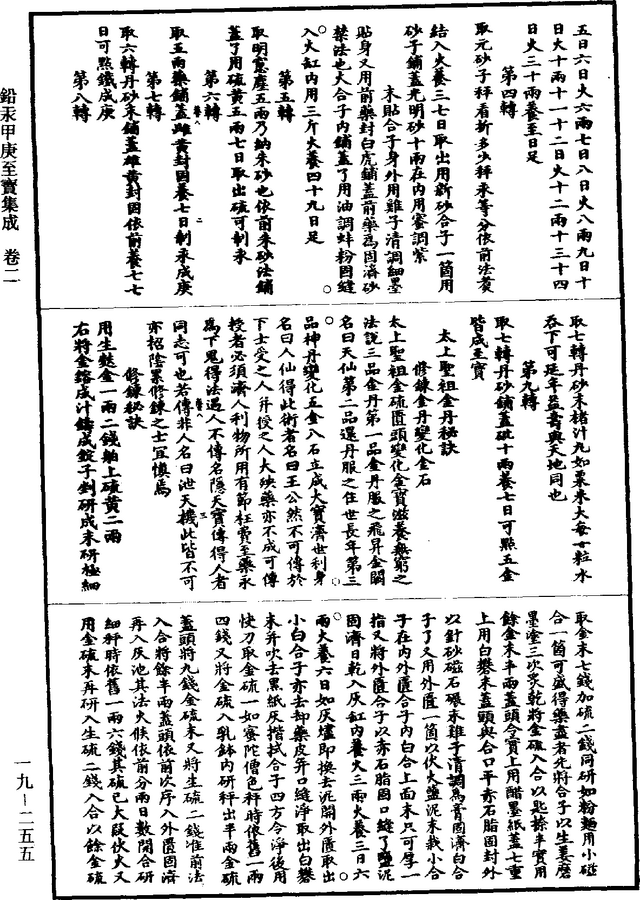 五日六日火六兩七日八日火八兩九日十
日火十兩十一十二日火十二兩十三十四
日火三十兩養至日足
第四轉
取元砂子秤看折多少秤汞等分依前法養
結入火養三七日取出用新砂合子一箇用
砂子鋪蓋光明砂十兩在内用蜜調紫
末貼合子身外用雞子清調細墨
貼身又用前藥封白虎鋪蓋前藥為固濟砂
禁法也大合子内鋪蓋了用油調蚌粉固縫
入火缸内用三斤火養四十九日足
第五轉
取明窻塵五兩乃納朱砂也依前朱砂法鋪
蓋了用硫黄五兩七日取出硫可制汞
第六轉
取五兩藥鋪蓋雌黄封固養七日制汞成庚
第七轉
取六轉丹砂末鋪蓋雄黄封固依前養七七
日可點鐵成庚
第八轉
取七轉丹砂末楮汁丸如粟米大每一粒水
吞下可延年益壽與天地同也
第九轉
取七轉丹砂鋪蓋砒十兩養七日可點五金
皆成至寶
太上聖祖金丹秘訣
修鍊金丹變化金石
太上聖祖金硫匱頭變化金寶滋養無窮之
法説三品金丹第一品金丹服之飛昇金闕
名曰天仙第二品還丹服之住世長年第三
品神丹變化五金八石立成大寶濟世利身
名曰人仙得此術者名曰王公然不可傳於
下士受之人并授之人大殃藥亦不成可傳
授者必須濟人利物所用有節枉費至藥永
為下鬼得法遇人不傳名隱天寶傳得人者
同志可也若傳非人名曰泄天機此皆不可
亦招陰累修鍊之士宜慎焉
修鍊秘訣
用生麩金一兩二錢舶上硫黄二兩
右將金鎔成汁鑄成錠子剉研成末研極細
取金末七錢加硫二錢同研如粉麵用小磁
合一箇可盛得藥蓋者先將合子以生姜磨
墨塗三次炙乾將金硫入合以匙捺平實用
餘金末半兩蓋頭令實上用醋墨紙蓋七重
上用白礬末蓋頭與合口平赤石脂固封外
以針砂磁石碾末雞子清調為膏固濟白合
子了又用外匱一箇以伏火鹽泥末栽小合
子在内外匱合子内白合上面末只可厚一
指又將外匱合子以赤石脂固口縫了鹽泥
固濟日乾入灰缸内養火三兩火養三日六
兩火養六日如灰爐即換去泥開外匱取出
小白合子亦去却藥皮并口縫淨取出白礬
末并吹去黑紙灰揩拭合子四方令淨後用
快刀取金硫一如蜜陀僧色秤時依舊一兩
四錢又將金硫入乳鉢内研秤出半兩金硫
蓋頭將九錢金硫末又將生硫二錢准前法
入合將餘半兩蓋頭依前以序入外匱固濟
再入灰池其法火候依前分兩日數開合研
細秤時依舊一兩六錢其硫已大段伏火又
用金硫末再研入生硫二錢入合以餘金硫
鉛汞甲庚至寶集成　卷二
一九—二五五